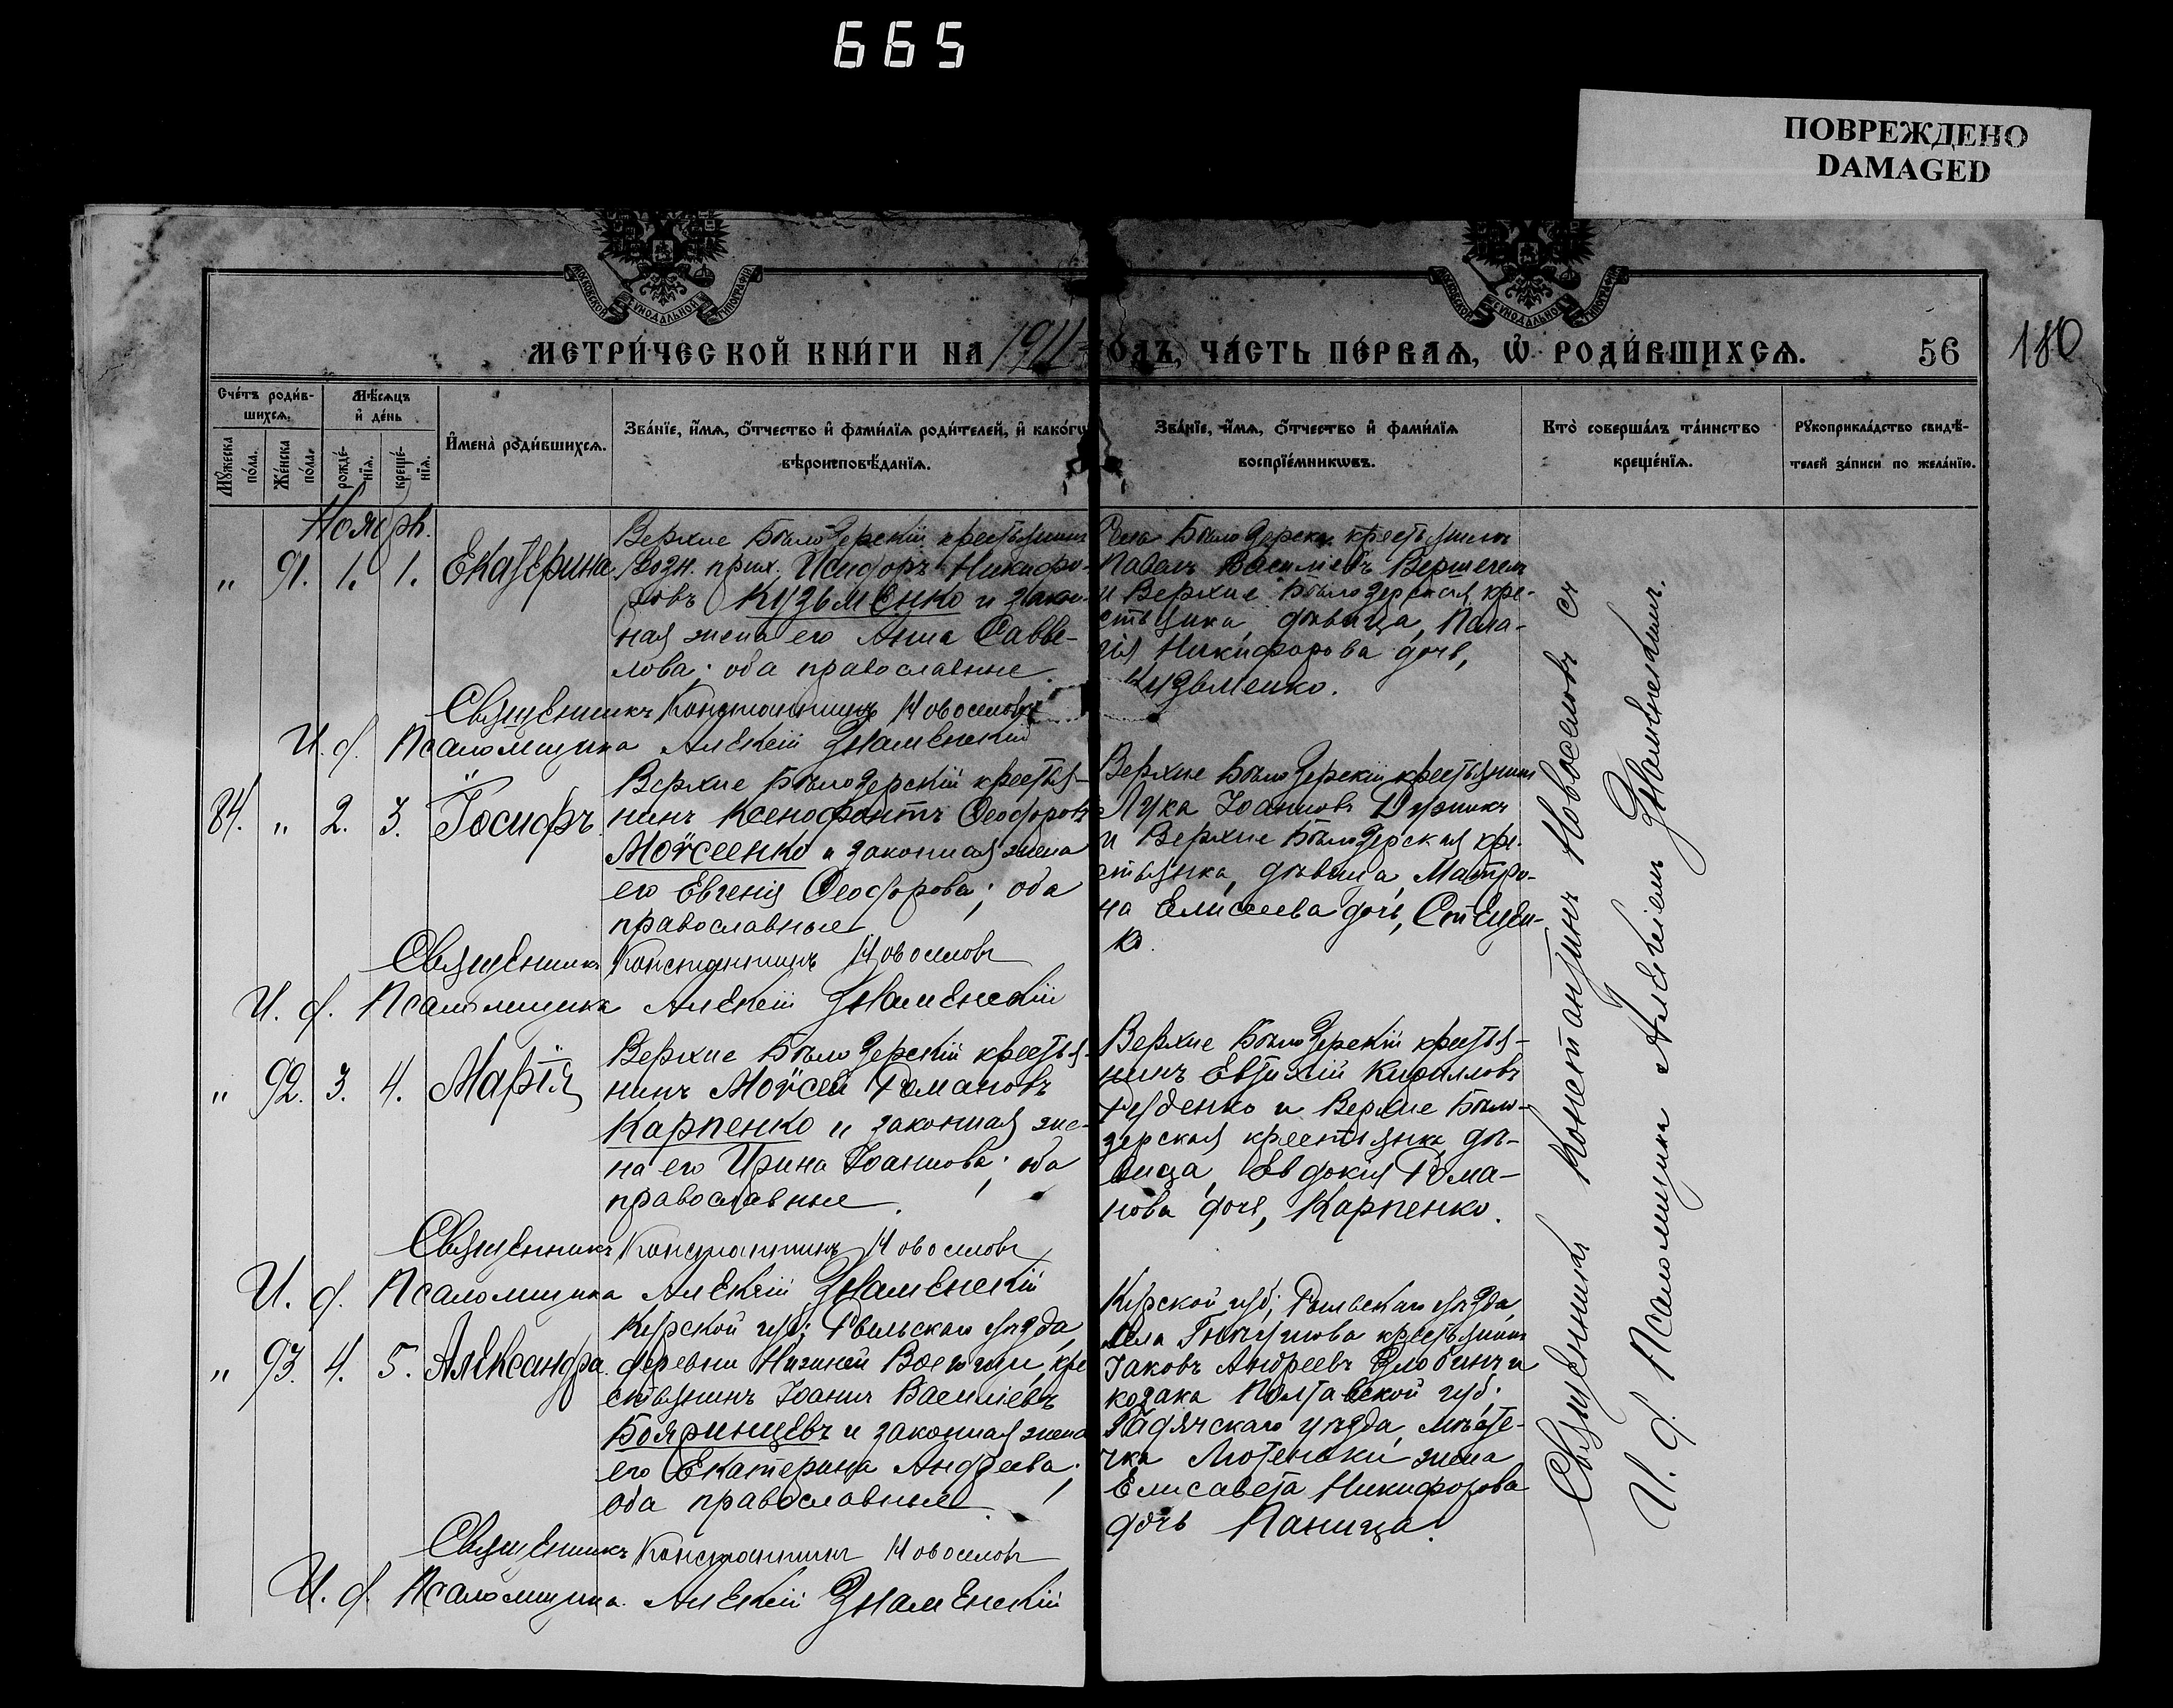 665
ПОВРЕЖДЕНО
DAMAGED
МОСКОВСКОЙ СѴНОДАЛЬНОЙ ТИПОГРАФІИ
МОСКОВСКОЙ СѴНОДАЛЬНОЙ ТИПОГРАФІИ
МЕТРИ́ЧЕСКОЙ КНИ́ГИ НА 1911 ГОДЪ, ЧА́СТЬ ПЕ́РВАѦ, Ѡ РОДИ́ВШИХСѦ.
56
180
Сче́тъ роди́в-
шихсѧ.
Мѣ́сѧцъ
и҆ де́нь
Мꙋ́жеска
по́ла.
Же́нска
по́ла.
рожде́-
нїѧ.
креще́-
нїѧ.
И҆мена̀ роди́вшихсѧ.
Зва́нїе, и҆́мѧ, ѻ҆́тчество и҆ фами́лїѧ роди́телей, и҆ како́гѡ
вѣроисповѣ́данїѧ.
Зва́нїе, и҆́мѧ, ѻ҆́тчество и҆ фами́лїѧ
воспрїе́мникѡвъ.
Кто̀ соверша́лъ та́инство
креще́нїѧ.
Рꙋкоприкла́дство свидѣ́-
телей за́писи по жела́нїю.
Ноябрь.
„ 91. 1. 1. Екатерина
Верхне Бѣлозерскій крестьянинъ
Возн. прих. Исидоръ Никифо-
ровъ Кузьменко и закон-
ная жена его Анна Савве-
лова; оба православные.
Села Бѣлозерска крестьянинъ
Павелъ Василіевъ
и Верхне Бѣлозерская кре-
стьянка, дѣвица, Пела-
гія Никифорова дочь,
Кузьменко.
Священникъ Константинъ Новоселовъ
И. д. Псаломщика Алексій Знаменскій
84. „ 2. 3. Іосифъ.
Верхне Бѣлозерскій крестья-
нинъ Ксенофонтъ Ѳеодоровъ
Моѵсеенко и законная жена
его Евгенія Ѳеодорова; оба
православные
Верхне Бѣлозерскій крестьянинъ
Лука Іоанновъ
и Верхне Бѣлозерская кре-
стьянка, дѣвица Матро-
на Елисеева дочь,
Священникъ Константинъ Новоселовъ
И. д. Псаломщика Алексій Знаменскій
„ 92. 3. 4. Марія
Верхне Бѣлозерскій крестья-
нинъ Моѵсей Романовъ
Карпенко и законная же-
на его Ирина Іоаннова; оба
православные.
Верхне Бѣлозерскій крестья-
нинъ Евтихій Кирилловъ
Руденко и Верхне Бѣло-
зерская крестьянка, дѣ-
вица, Евдокія Рома-
нова дочь, Карпенко.
Священникъ Константинъ Новоселовъ
И. д. Псаломщика Алексій Знаменскій
„ 93. 4. 5. Александра.
Курской губ; Рыльскаго уѣзда,
деревни Нижней кре-
стьянинъ Іоаннъ Василіевъ
Бояринцевъ и законная жена
его Екатерина Андреева;
оба православные.
Курской губ; Рыльскаго уѣзда,
села крестьянинъ
Іаковъ Андреевъ Злобинъ и
козака Полтавской губ;
Гадячскаго уѣзда, мѣсте-
чка Лютеньки жена
Елисавета Никифорова
дочь Паница.
Священникъ Константинъ Новоселовъ
И. д. Псаломщика Алексій Знаменскій
Священникъ Константинъ Новоселовъ съ
И. д. Псаломщика Алексіемъ Знаменскимъ.